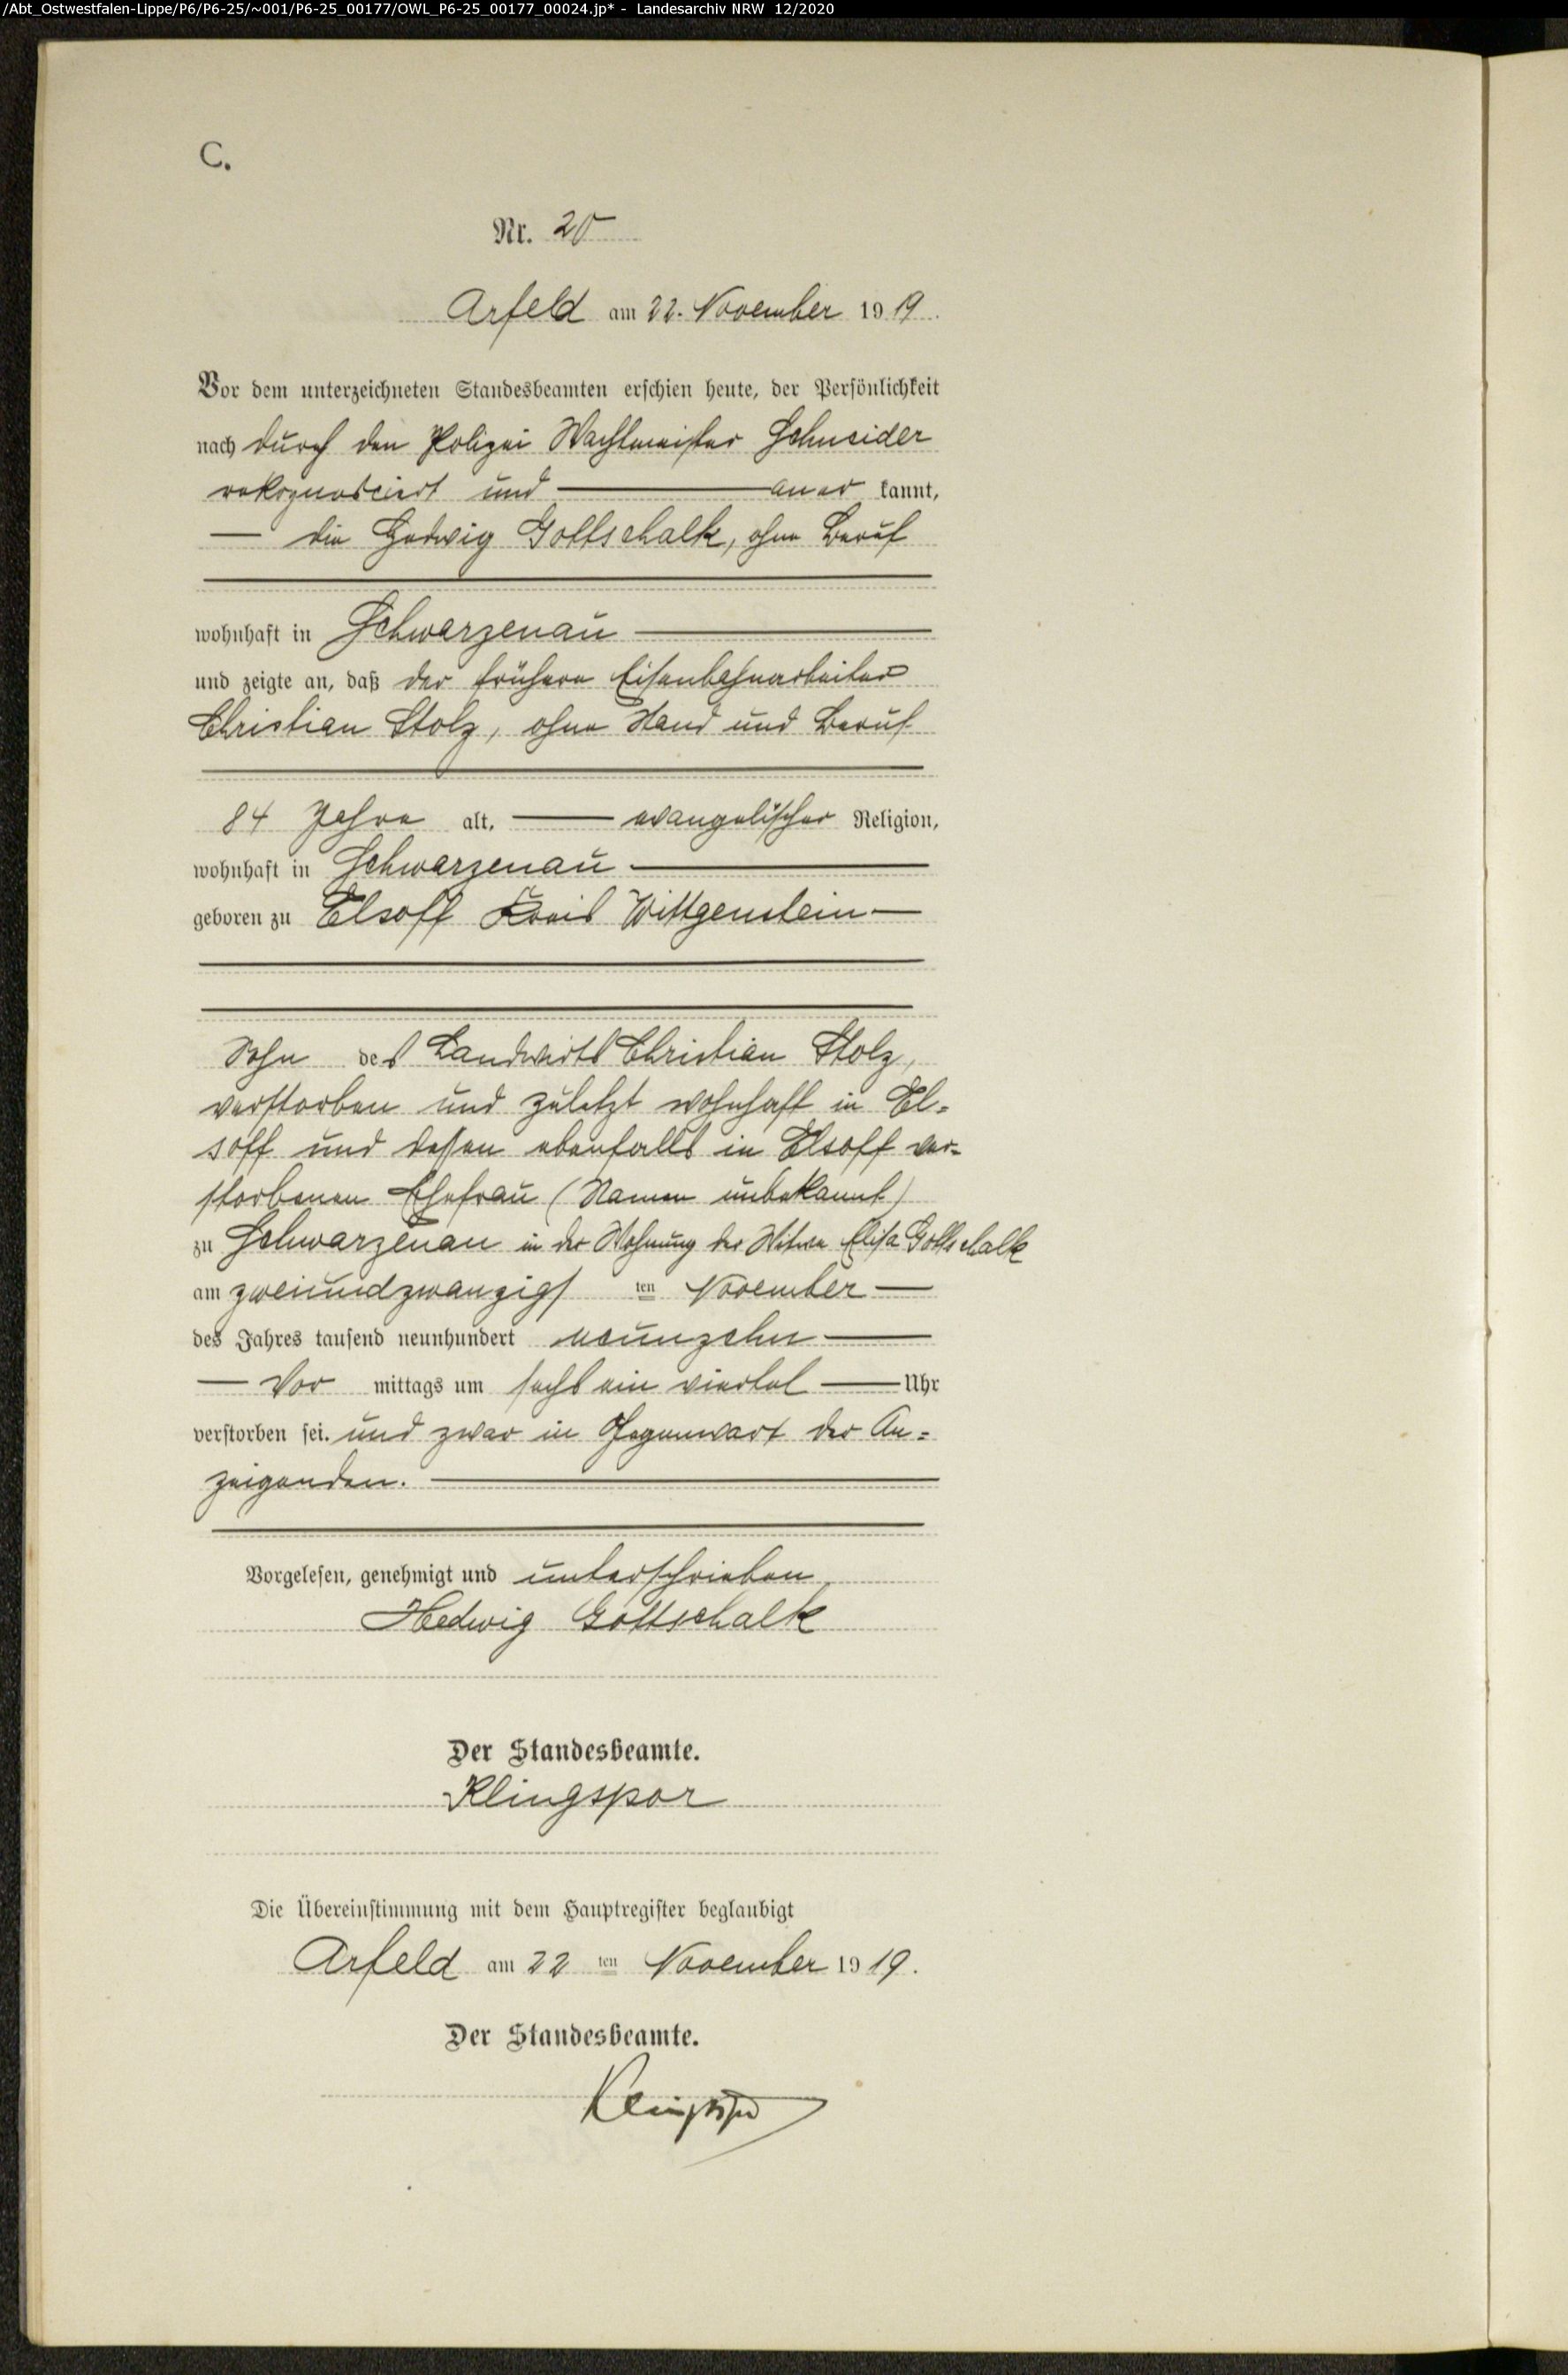 /Abt_Ostwestfalen-Lippe/P6/P6-25/~001/P6-25_00177/OWL_P6-25_00177_00024.jp* - Landesarchiv NRW 12/2020
C.
Nr. 20
Arfeld am 22. November 1919.
Vor dem unterzeichneten Standesbeamten erschien heute, der Persönlichkeit
nach durch den Polizei Wachtmeister Schneider
rekognosciert und — aner kannt,
— die Hedwig Gottschalk, ohne Beruf
wohnhaft in Schwarzenau —
und zeigte an, daß der frühere Eisenbahnarbeiter
Christian Stolz, ohne Stand und Beruf
84 Jahre alt, — evangelischer Religion,
wohnhaft in Schwarzenau —
geboren zu Elsoff Kreis Wittgenstein —
Sohn des Landwirts Christian Stolz,
verstorben und zuletzt wohnhaft in El=
soff und dessen ebenfalls in Elsoff ver=
storbenen Ehefrau (Namen unbekannt)
zu Schwarzenau in der Wohnung der Witwe Elisa Gottschalk
am zweiundzwanzigs ten November —
des Jahres tausend neunhundert neunzehn —
— Vor mittags um sechs ein viertel — Uhr
verstorben sei. und zwar in Gegenwart der An=
zeigenden. —
Vorgelesen, genehmigt und unterschrieben
Hedwig Gottschalk
Der Standesbeamte.
Klingspor
Die Übereinstimmung mit dem Hauptregister beglaubigt
Arfeld am 22 ten November 1919.
Der Standesbeamte.
Klingspor